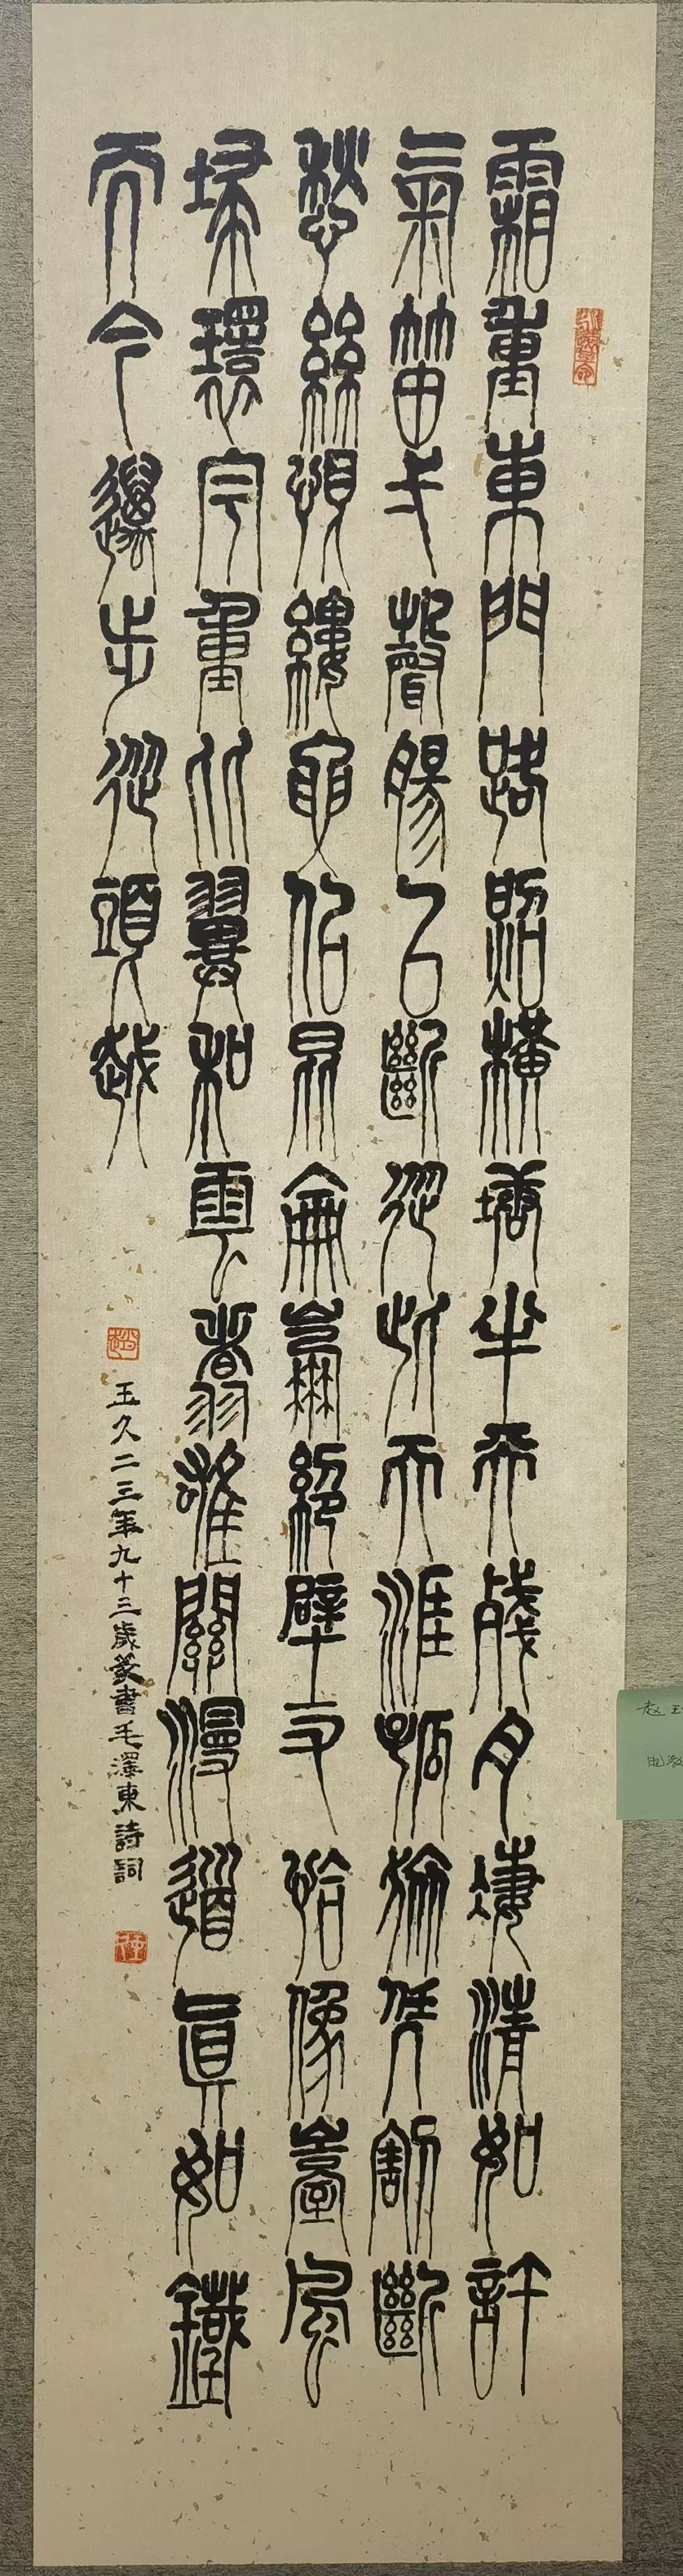 霜重東門路照橫塘半天殘月淒清如許
氣笛弌聲腸已斷從此天涯孤旅凭割斷
愁絲恨縷要似昆侖崩絕壁又恰像臺風
埽環宇重比翼和雲翥雄關漫道真如鐵
而今邁步從頭越
趙
玉久二三年九十三歲篆書毛澤東詩詞
赵玉